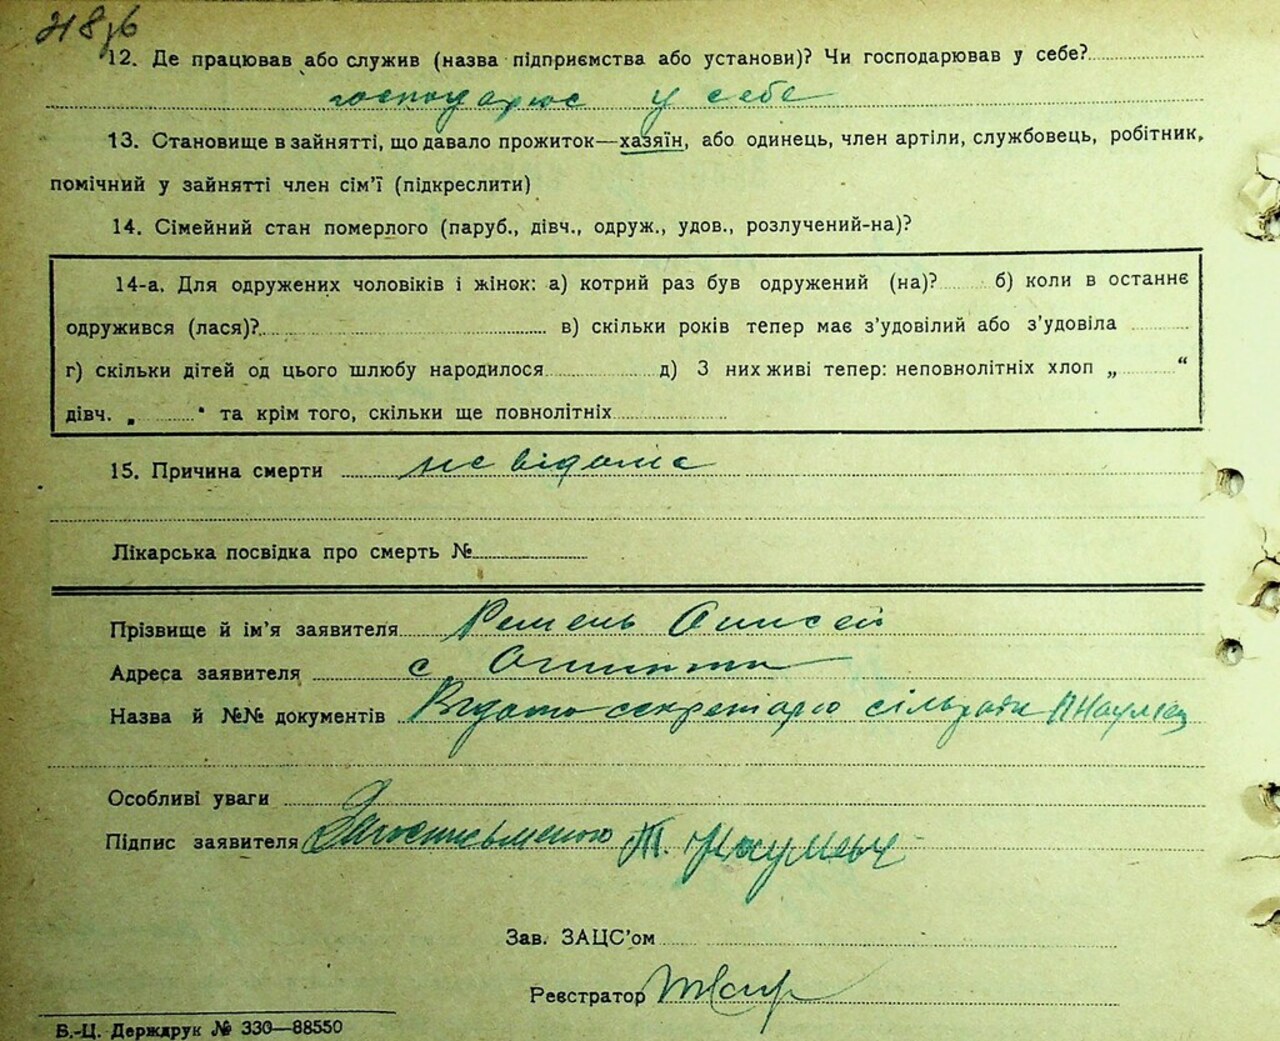 12. Де працював або служив (назва підприємства або установи)? Чи господарював у себе?
господарює у себе
13. Становище в зайнятті, що давало прожиток—хазяїн, або одинець, член артіли, службовець, робітник,
помічний у зайнятті член сім'ї (підкреслити)
14. Сімейний стан померлого (паруб., дівч., одруж., удов., розлучений-на)?
14-а. Для одружених чоловіків і жінок: а) котрий раз був одружений (на)? б) коли в останнє
одружився (лася)? в) скільки років тепер має з'удовілий або з'удовіла
г) скільки дітей од цього шлюбу народилося д) З них живі тепер: неповнолітніх хлоп „ “
дівч. „ “ та крім того, скільки ще повнолітніх
15. Причина смерти не відома
Лікарська посвідка про смерть №
Прізвище й ім'я заявителя
Адреса заявителя с
Назва й №№ документів секретарю сільради
Особливі уваги
Підпис заявителя
Зав. ЗАЦС'ом
Реєстратор
Б.-Ц. Держдрук № 330—88550